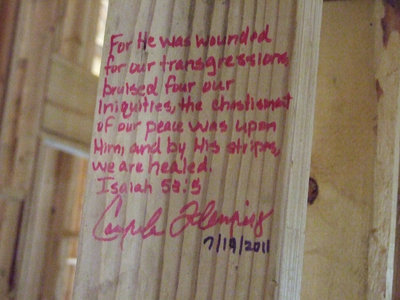 For He was wounded
for our transgressions,
bruised four our
Iniquities, the chastisment
of our peace was upon
Him, and by His stripes,
we are healed.
Isaiah 53.5
7/19/2011